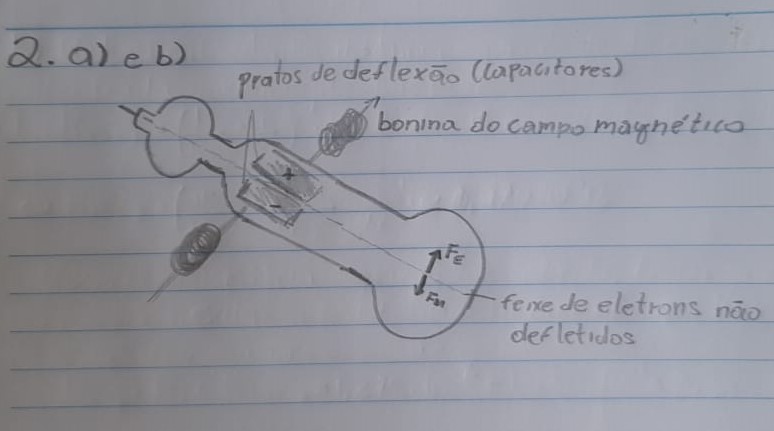 2. a) e b)
pratos de deflexão (capacitores)
bonina do campo magnético
+
-
FE
FM
feixe de eletrons não
defletidos